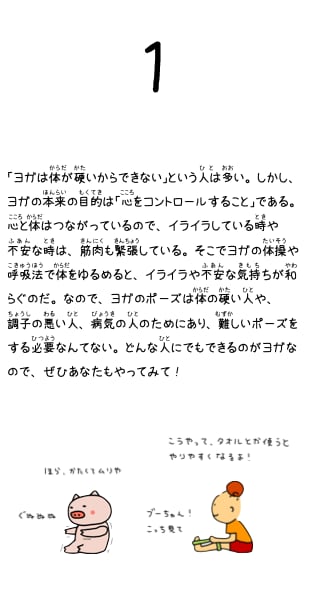 1
「ヨガは体が硬いからできない」という人は多い。しかし、
ヨガの本来の目的は「心をコントロールすること」である。
心と体はつながっているので、イライラしている時や
不安な時は、筋肉も緊張している。そこでヨガの体操や
呼吸法で体をゆるめると、イライラや不安な気持ちが和
らぐのだ。なので、ヨガのポーズは体の硬い人や、
調子の悪い人、病気の人のためにあり、難しいポーズを
する必要なんてない。どんな人にでもできるのがヨガな
ので、ぜひあなたもやってみて！
こうやって、タオルとか使うと
やりやすくなるよ！
ほら、かたくてムリや
ぐぬぬぬ
ブーちゃん！
こっち見て